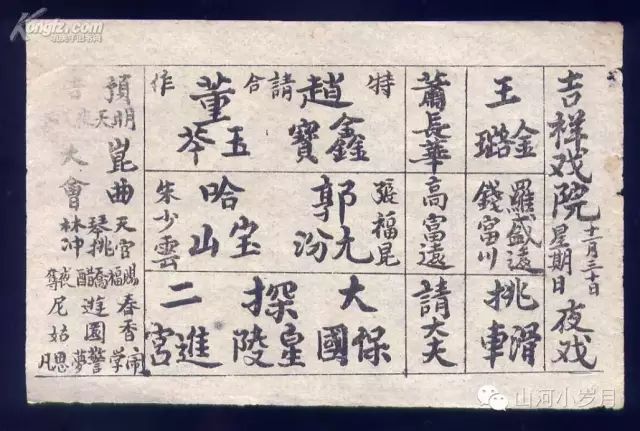 Kongfz.com
吉祥戏院 十一月三十日 星期日 夜戏
王金璐
羅盛遠
錢富川
挑滑車
蕭長華
高富遠
請大夫
特請合作
趙鑫寶
董玉苓
張福昆
郭元汾
哈宝山
朱少雲
大保國
探皇陵
二進宮
預
明天
崑曲大會
天官賜福
春香闹学
琴挑
醋
遊園驚夢
林冲夜奔
尼姑思凡
山河小岁月